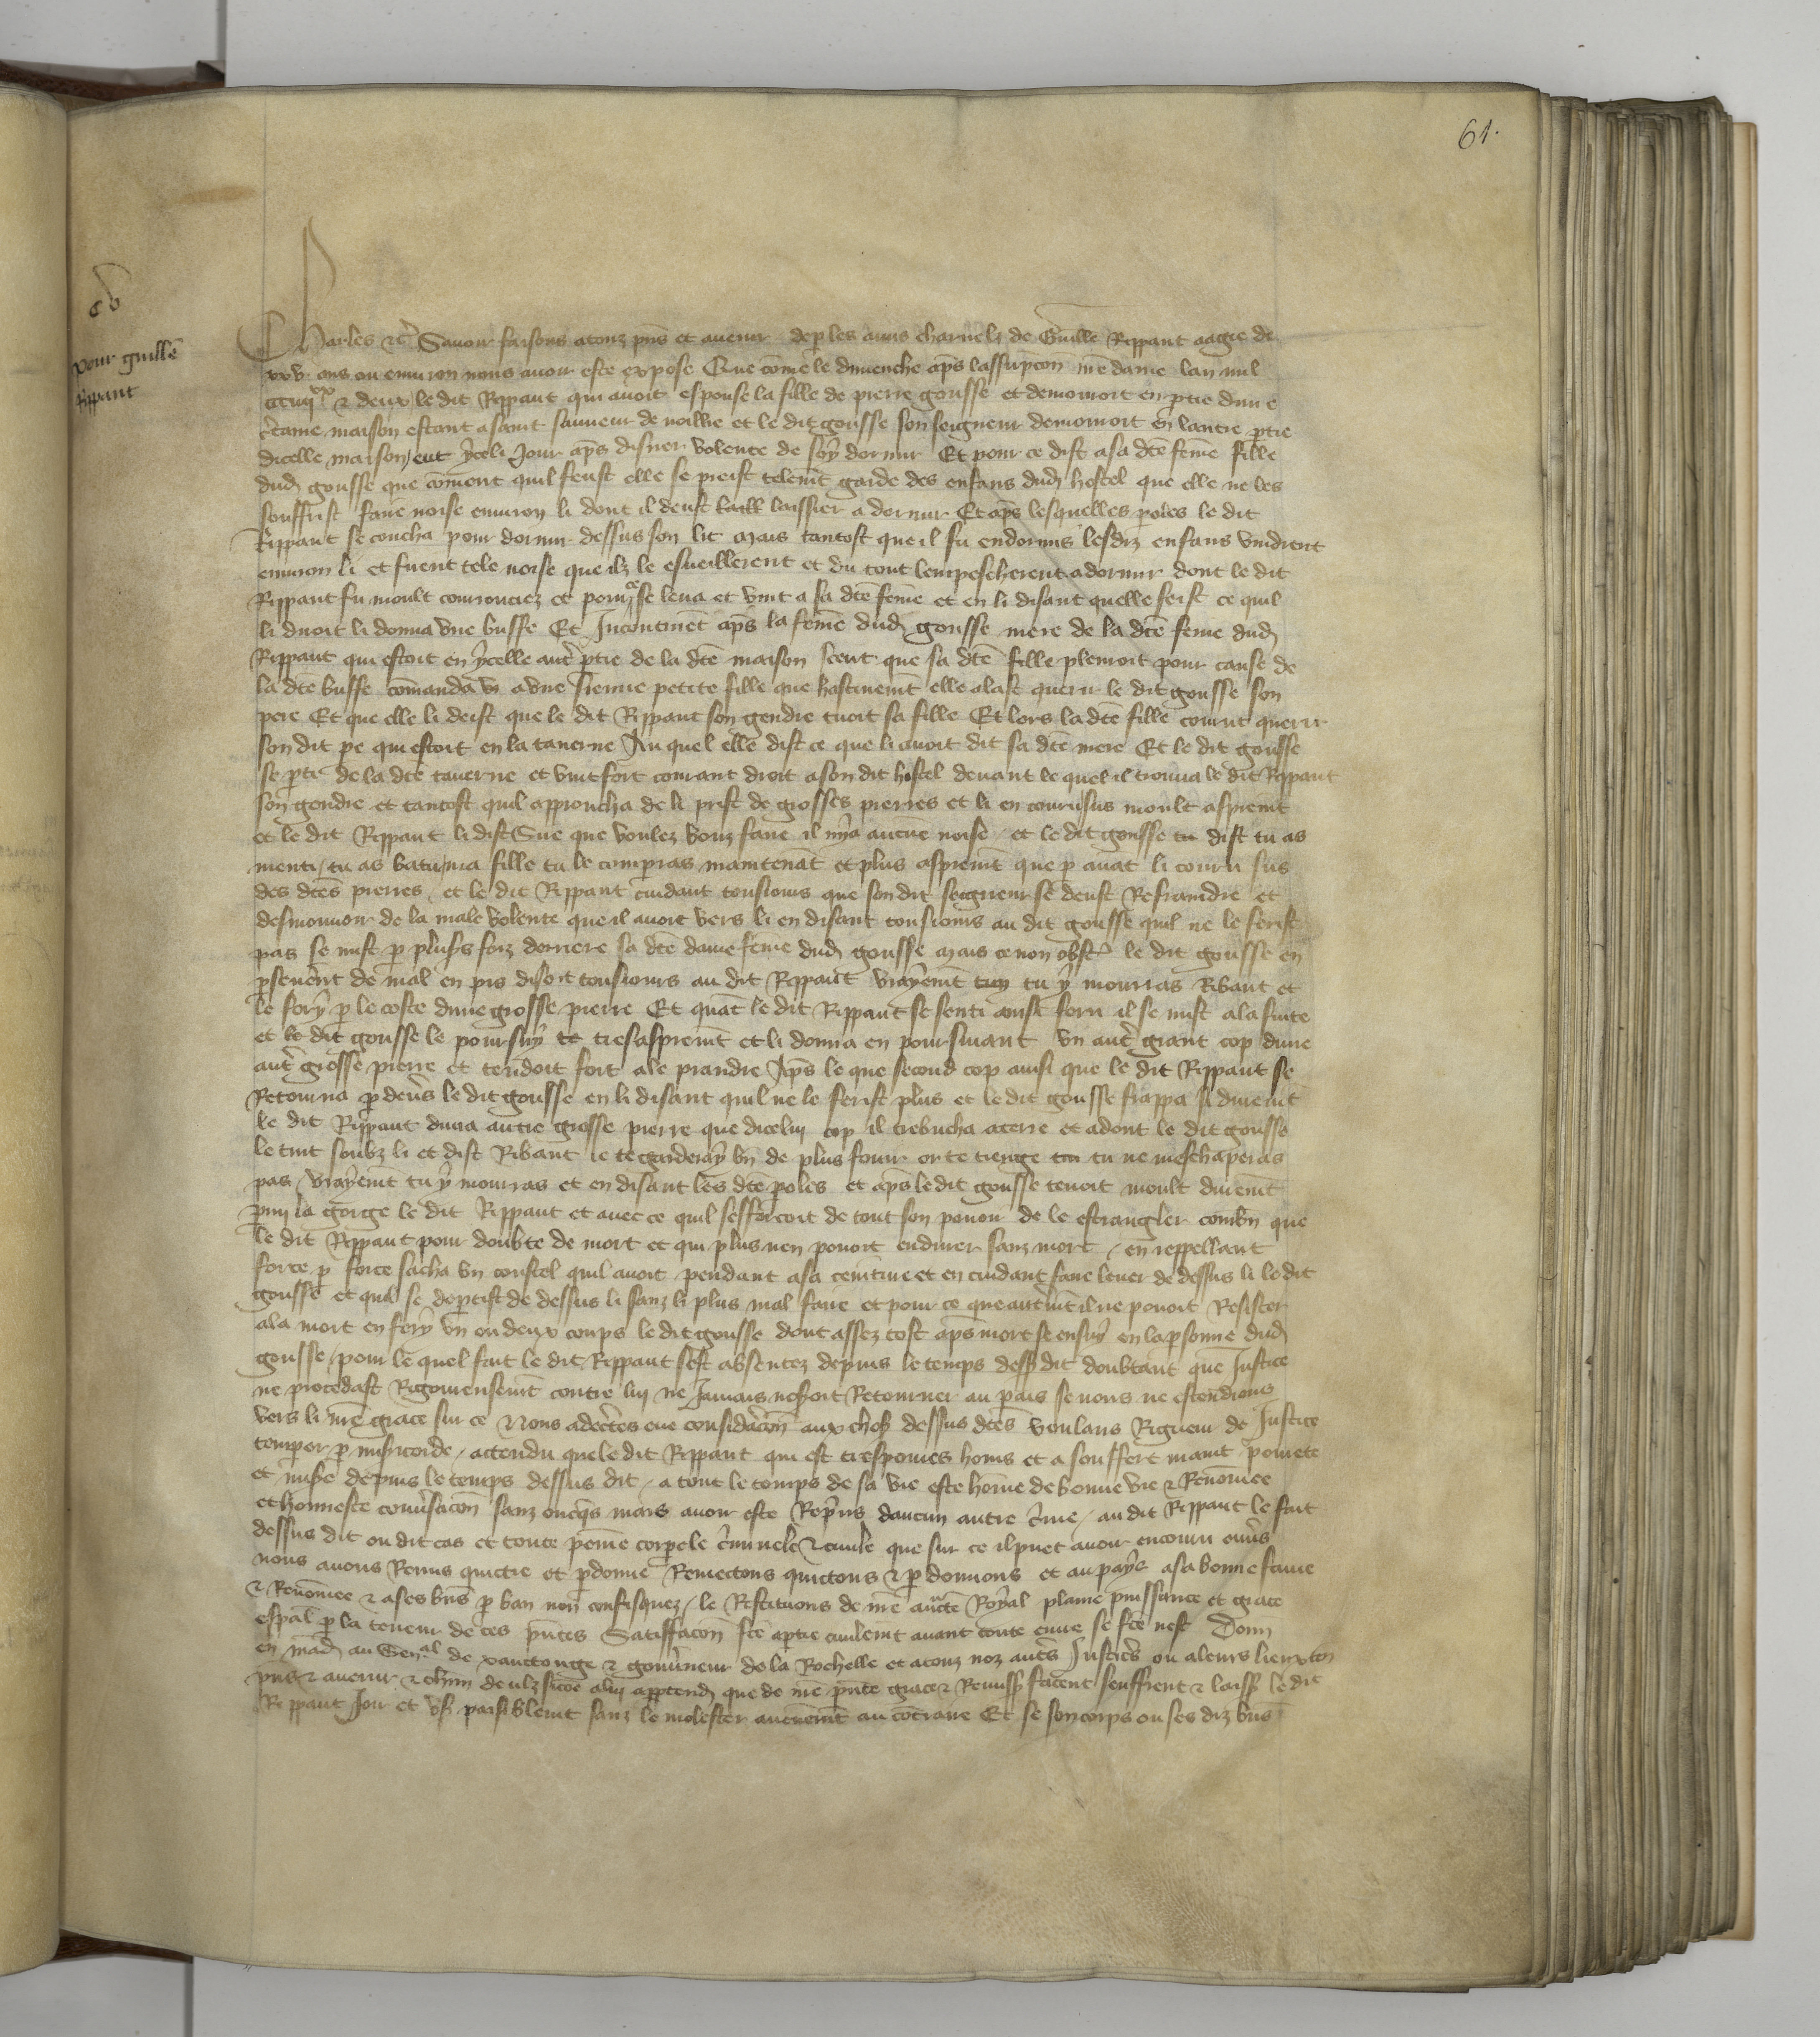 61.
cv
pour guille
Rippaut
Charles etc Savoir faisons a touz pns et avenir de p les amis charnelz de Guille Rippaut aagie de
xxv ans ou environ nous avoir este expose Que come le dimenche aps lassumpcon nre dame lan mil
ccciiijxx et deux le dit Rippaut qui avoit espouse la fille de pierre gousse et demouroit en ptie dune
ctaine maison estant a saint sauveur de et le dit gousse son seigneur demouroit en lautre ptie
dicelle maison eut yceli Jour aps disner volente de soy dormir Et pour ce dist a sa dte feme fille
dud gousse que coment quil feust elle se preist telemt garde des enfans dud hostel que elle ne les
souffrist faire noise environ li dont il deust laissier a dormir Et aps lesquelles poles le dit
Rippaut se coucha pour dormir dessus son lit Mais tantost que il fu endormis lesdiz enfans vindrent
environ li et firent tele noise que ilz le esveillerent et du tout lempescherent a dormir dont le dit
Rippaut fu moult courouciez et pour ce se leva et vint a sa dte feme et en li disant quelle feist ce quil
li diroit li donna une buffe Et Incontinet aps la feme dud gousse mere de la dte feme dud
Rippaut qui estoit en ycelle autre ptie de la dte maison sceut que sa dte fille plouroit pour cause de
la dte buffe comanda a une sienne petite fille que hastivemt elle alast querir le dit gousse son
pere Et que elle li deist que le dit Rippaut son gendre tuoit sa fille Et lors la dte fille courut querir
son dit pe qui estoit en la taverne Au quel elle dist ce que li avoit dit sa dte mere Et le dit gousse
se pti de la dte taverne et vint fort courant droit a son dit hostel devant le quel il trouva le dit Rippaut
son gendre et tantost quil approucha de li prist de grosses pierres et li en couru sus moult aspremt
et le dit Rippaut li dist Sire que voulez vouz faire il ny a aucune noise et le dit gousse dist tu as
menti tu as batu ma fille tu le comperas maintenat et plus aspremt que p avat li couru sus
des dtes pierres et le dit Rippaut cuidant tousiours que son dit seigneur se deust Refraindre et
desmouvoir de la male volente que il avoit vers li en disant tousiours au dit gousse quil ne le ferist
pas se mist p plusrs foiz derriere sa dte dame feme dud gousse mais ce non obst le dit gousse en
pseverat de mal en pis disoit tousiours au dit Rippaut vrayemt tu y mourras Ribaut et
le fery p le coste dune grosse pierre Et quat le dit Rippaut se senti ainsi feru il se mist a la fuite
et le dit gousse le poursuy tresasprement et li donna en poursuivant un autre grant cop dune
autre grosse pierre et tendoit fort a le prandre Aps le que second cop ainsi que le dit Rippaut se
Retourna p devers le dit gousse en li disant quil ne le ferist plus et le dit gousse frappa si duremt
le dit Rippaut duna autre grosse pierre que dicelui cop il trebucha a terre et adont le dit gousse
le tint soubz li et dist Ribaut je te garderay bn de plus fouir or te tienge tu ne meschaperas
pas vrayemt tu y mourras et en disant les dtes poles et aps le dit gousse tenoit moult duremt
pmi la gorge le dit Rippaut et avec ce quil sefforcoit de tout son povoir de le estrangler combn que
le dit Rippaut pour doubte de mort et qui plus nen povoit endurer sanz mort en reppellant
force p force sacha un coustel quil avoit pendant a sa ceinture et en cuidant faire lever de dessus li le dit
gousse et quil se deptist de dessus li sanz li plus mal faire et pour ce que autremt il ne povoit Resister
a la mort en fery un ou deux coups le dit gousse dont assez tost aps mort se ensuy en la psonne dud
gousse pour le quel fait le dit Rippaut sest absentez depuis le temps dess dit doubtant que Justice
ne procedast Rigoureusemt contre lui ne Jamais noseroit Retourner au pais se nous ne estendions
vers li nre grace sur ce Nous adecertes eue consideracon aux choses dessus dtes voulans Rigueur de Justice
temperer p misericorde actendu que le dit Rippaut qui est trespovres homs et a souffert maint povrete
et misere depuis le temps dessus dit a tout le temps de sa vie este home de bonne vie et Renomee
et honneste conversacon sanz oncqs mais avoir este Repris daucun autre crime au dit Rippaut le fait
dessus dit ou dit cas et toute peine corpele crimnele et civile que sur ce il puet avoir encouru envers
nous avons Remis quictie et pdonne Remectons quictons et p donnons et au pays a sa bonne fame
et Renomee et a ses bns p ban non confisquez le Restituons de nre aucte Royal plaine puissance et grace
espal p la teneur de ces pntes Satiffacon fce a ptie civilemt avant toute euvre se fce nest Donn
en mand au Seneal de xanctonge et gouverneur de la Rochelle et a touz noz autrs Justicrs ou a leurs lieuxten
pns et avenir et a chun deulz sicoe a lui apptend que de nre pnte grace et Remiss facent seuffrent et laiss le dit
Rippaut Joir et us paisiblemt sanz le molester aucunemt au contraire Et se son corps ou ses diz bns